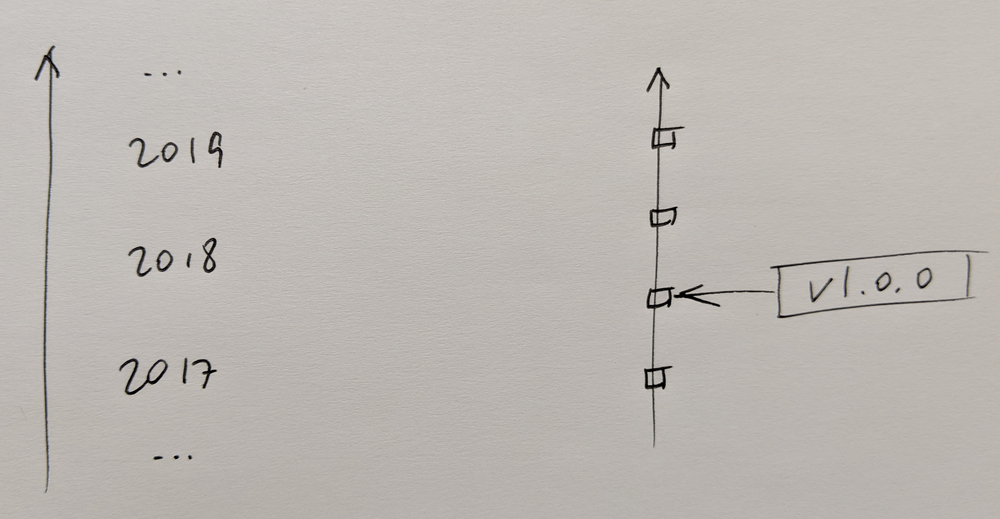 ...
2019
2018
2017
...
v1.0.0